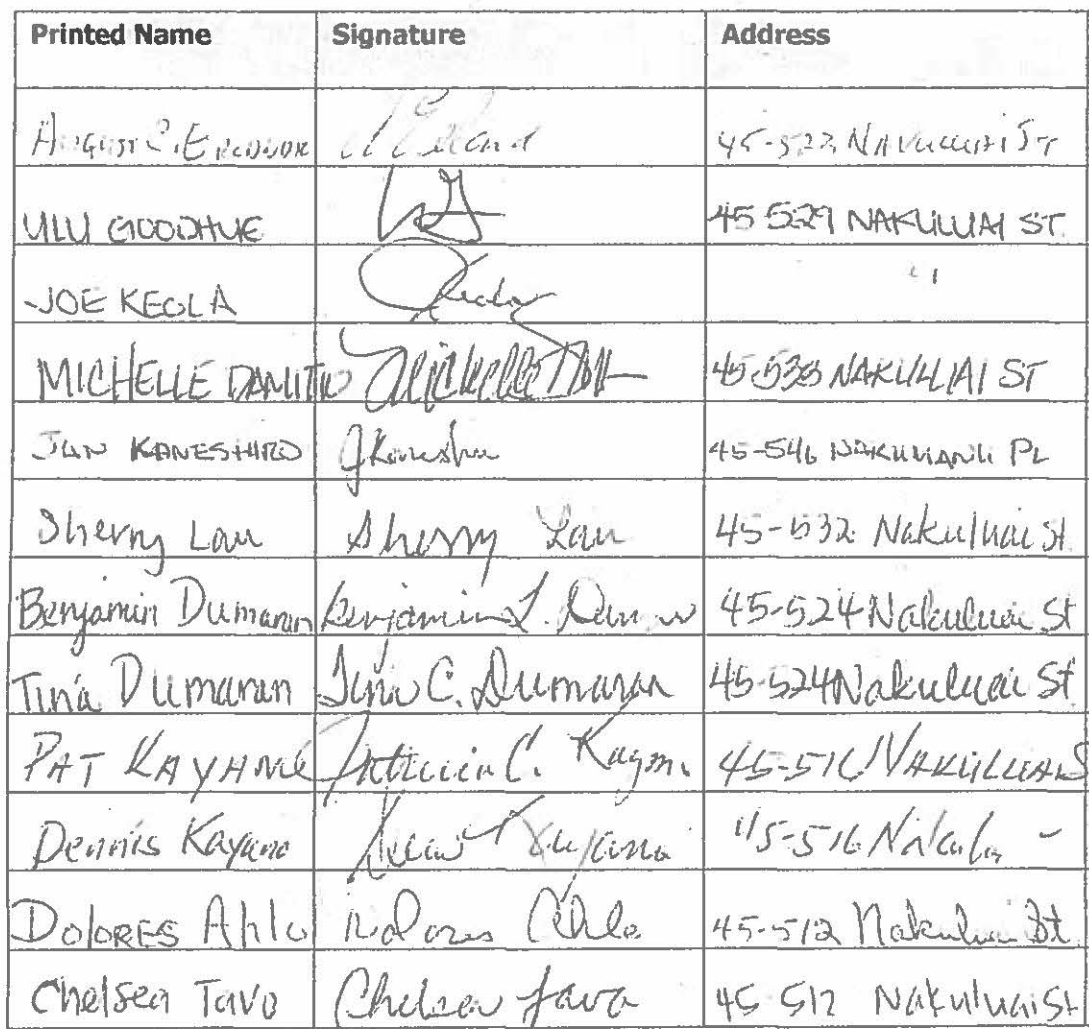 Printed Name Signature Address
45-522 NAKULUAI ST
ULU GOODHUE 45-529 NAKULUAI ST.
JOE KEOLA "
MICHELLE DAMITIO Michelle 45-533 NAKULUAI ST
JUN KANESHIRO JKaneshiro 45-546 PL
Sherry Lau Sherry Lau 45-532 Nakuluai St.
Benjamin Dumaran Benjamin L. 45-524 Nakuluai St
Tina Dumaran Tina C. Dumaran 45-524 Nakuluai St
PAT KAYANO Patricia C. 45-516 NAKULUAI S
Dennis Kayano Kayano 45-516 Nakulu
DOLORES Ahlo Dolores Ahlo 45-512 Nakuluai St.
Chelsea Tavo Chelsea Tavo 45 512 Nakuluai St